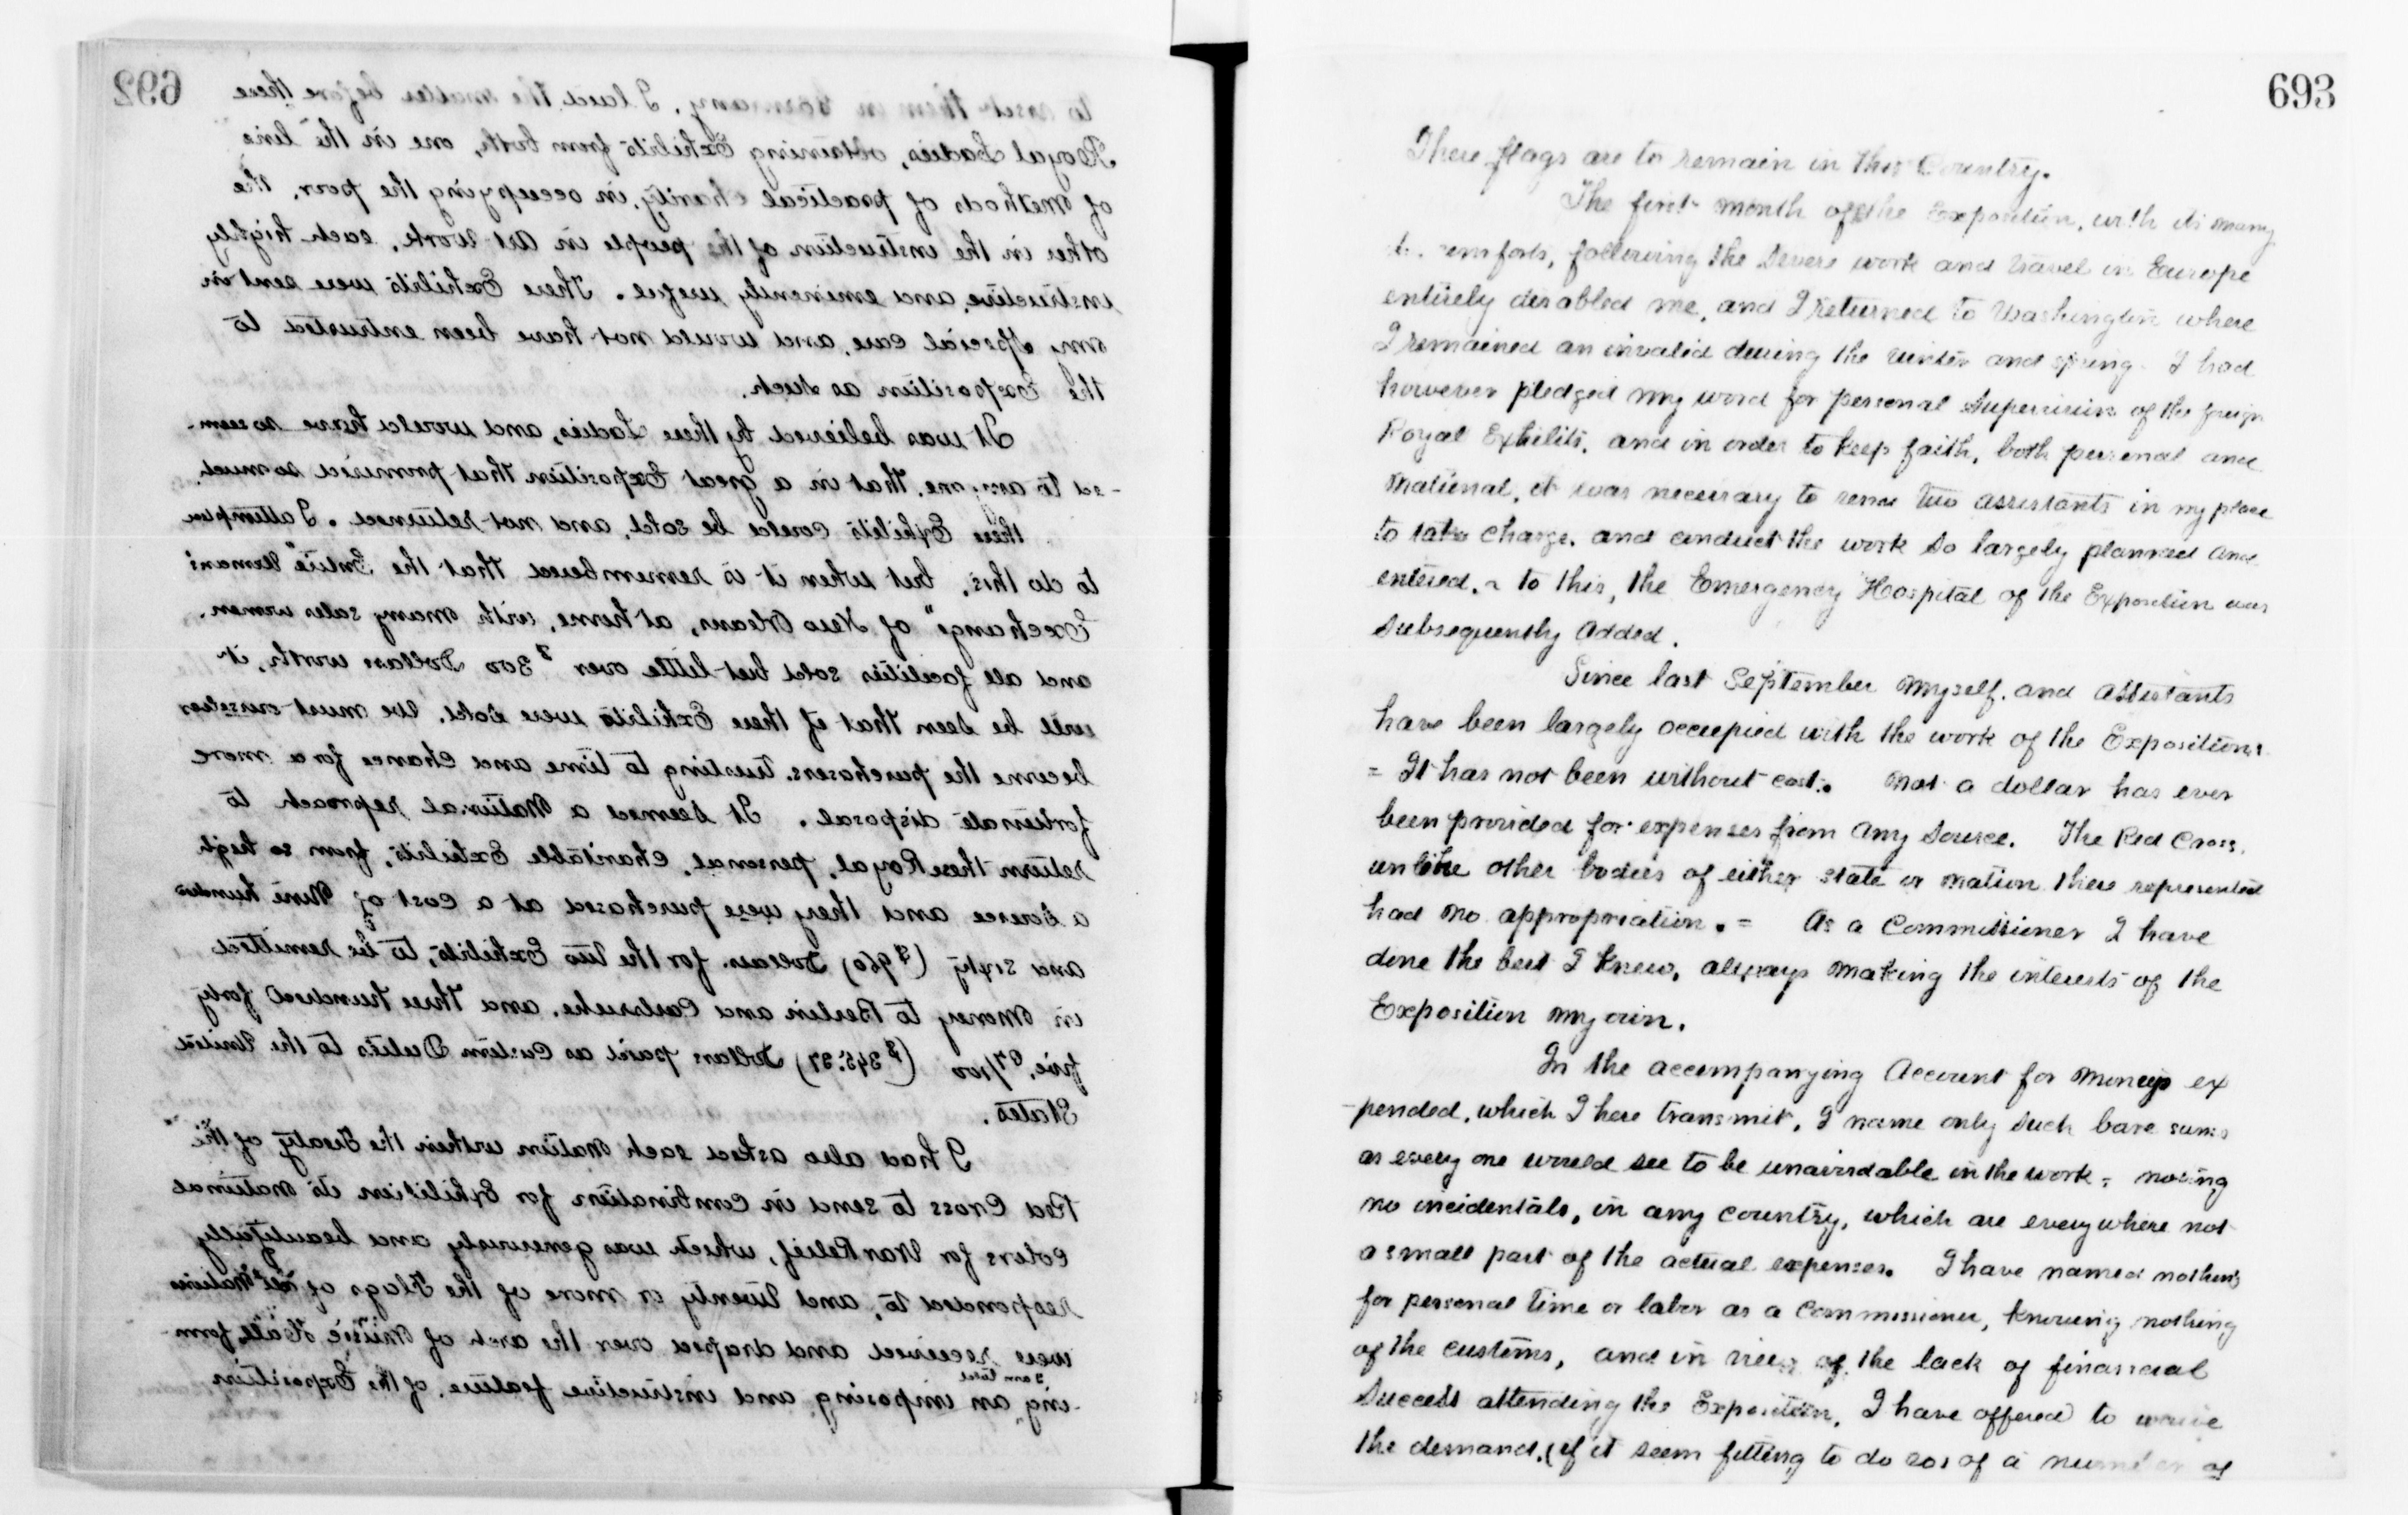 692
to assist them in Germany. I laid the matter before these
Royal Ladies, obtaining Exhibits from both, one in the line
of methods of practical charity, in occupying the poor, the
other in the instruction of the people in Art work, each highly
instructive, and eminently useful. These Exhibits were sent in
my special care, and would not have been entrusted to
the Exposition as such.
It was believed by these Ladies, and would have so seem-
-ed to any one, that in a great Exposition that promised so much,
these Exhibits could be sold, and not returned. I attempted
to do this, but when it is remembered that the Entire "Womans
Exchange" of New Orleans, at home, with many sales women,
and all facilities sold but little over $300 Dollars worth, it
will be seen that if these Exhibits were sold, we must ourselves
become the purchasers, trusting to time and chance for a more
fortunate disposal. It seemed a National reproach to
return these Royal, personal, Charitable Exhibits, from so high
a source and they were purchased at a cost of Nine hundred
and sixty ($960) Dollars for the two Exhibits, to be remitted
in Money to Berlin and Carlsruhe, and Three hundred forty
five, 37/100 ($345.37) Dollars paid as Custom Duties to the United
States.
I had also asked each Nation within the Treaty of the
Red Cross to send in Combination for Exhibition its National
colors for War Relief, which was generously and beautifully
responded to, and twenty or more of the Flags of the Nations
were received and draped over the arch of Music Hall, form-
I am told
-ing an imposing and instructive feature, of the Exposition
693
These flags are to remain in this Country.
The first month of the Exposition, with its many
, following the severe work and travel in Europe
entirely disabled me, and I returned to Washington where
I remained an invalid during the winter and spring. I had
however pledged my word for personal supervision of the foreign
Royal Exhibits, and in order to keep faith, both personal and
National, it was necessary to send two assistants in my place
to take charge, and conduct the work so largely planned and
entered. ~ to this, the Emergency Hospital of the Exposition was
subsequently added.
Since last September myself, and assistants
have been largely occupied with the work of the Expositions
= It has not been without cost. Not a dollar has ever
been provided for expenses from any source. The Red Cross,
unlike other bodies of either state or nation there represented
had no appropriation. = As a Commissioner I have
done the best I knew, always making the interests of the
Exposition my own.
In the accompanying Account for moneys ex
-pended, which I here transmit, I name only such bare sums
as every one would see to be unavoidable in the work = noting
no incidentals, in any country, which are everywhere not
a small part of the actual expenses. I have named nothing
for personal time or labor as a Commissioner, knowing nothing
of the customs, and in view of the lack of financial
success attending the Exposition, I have offered to waive
the demand, (if it seem fitting to do so) of a number of